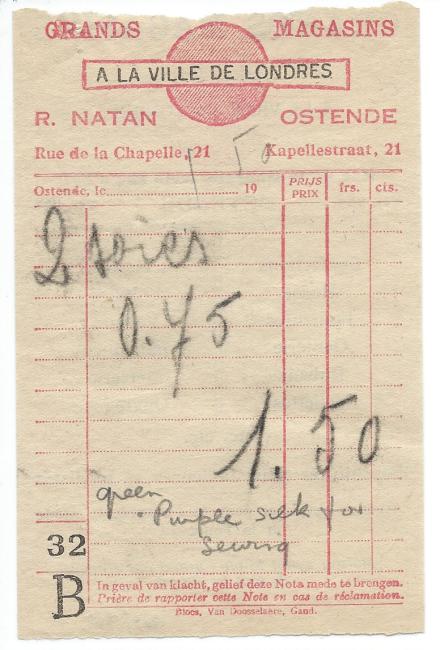 GRANDS MAGASINS
A LA VILLE DE LONDRES
R. NATAN OSTENDE
Rue de la Chapelle, 21 Kapellestraat, 21
Ostende, le 19 PRIJS PRIX frs. cts.
2 soies
0.75
1.50
green
Purple silk for
sewing
32
B
In geval van klacht, gelief deze Nota mede te brengen.
Prière de rapporter cette Note en cas de réclamation.
Blocs, Van Doosselaere, Gand.